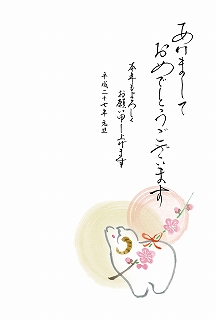 あけまして
おめでとうございます
本年もよろしく
お願い申し上げます
平成二十七年 元旦